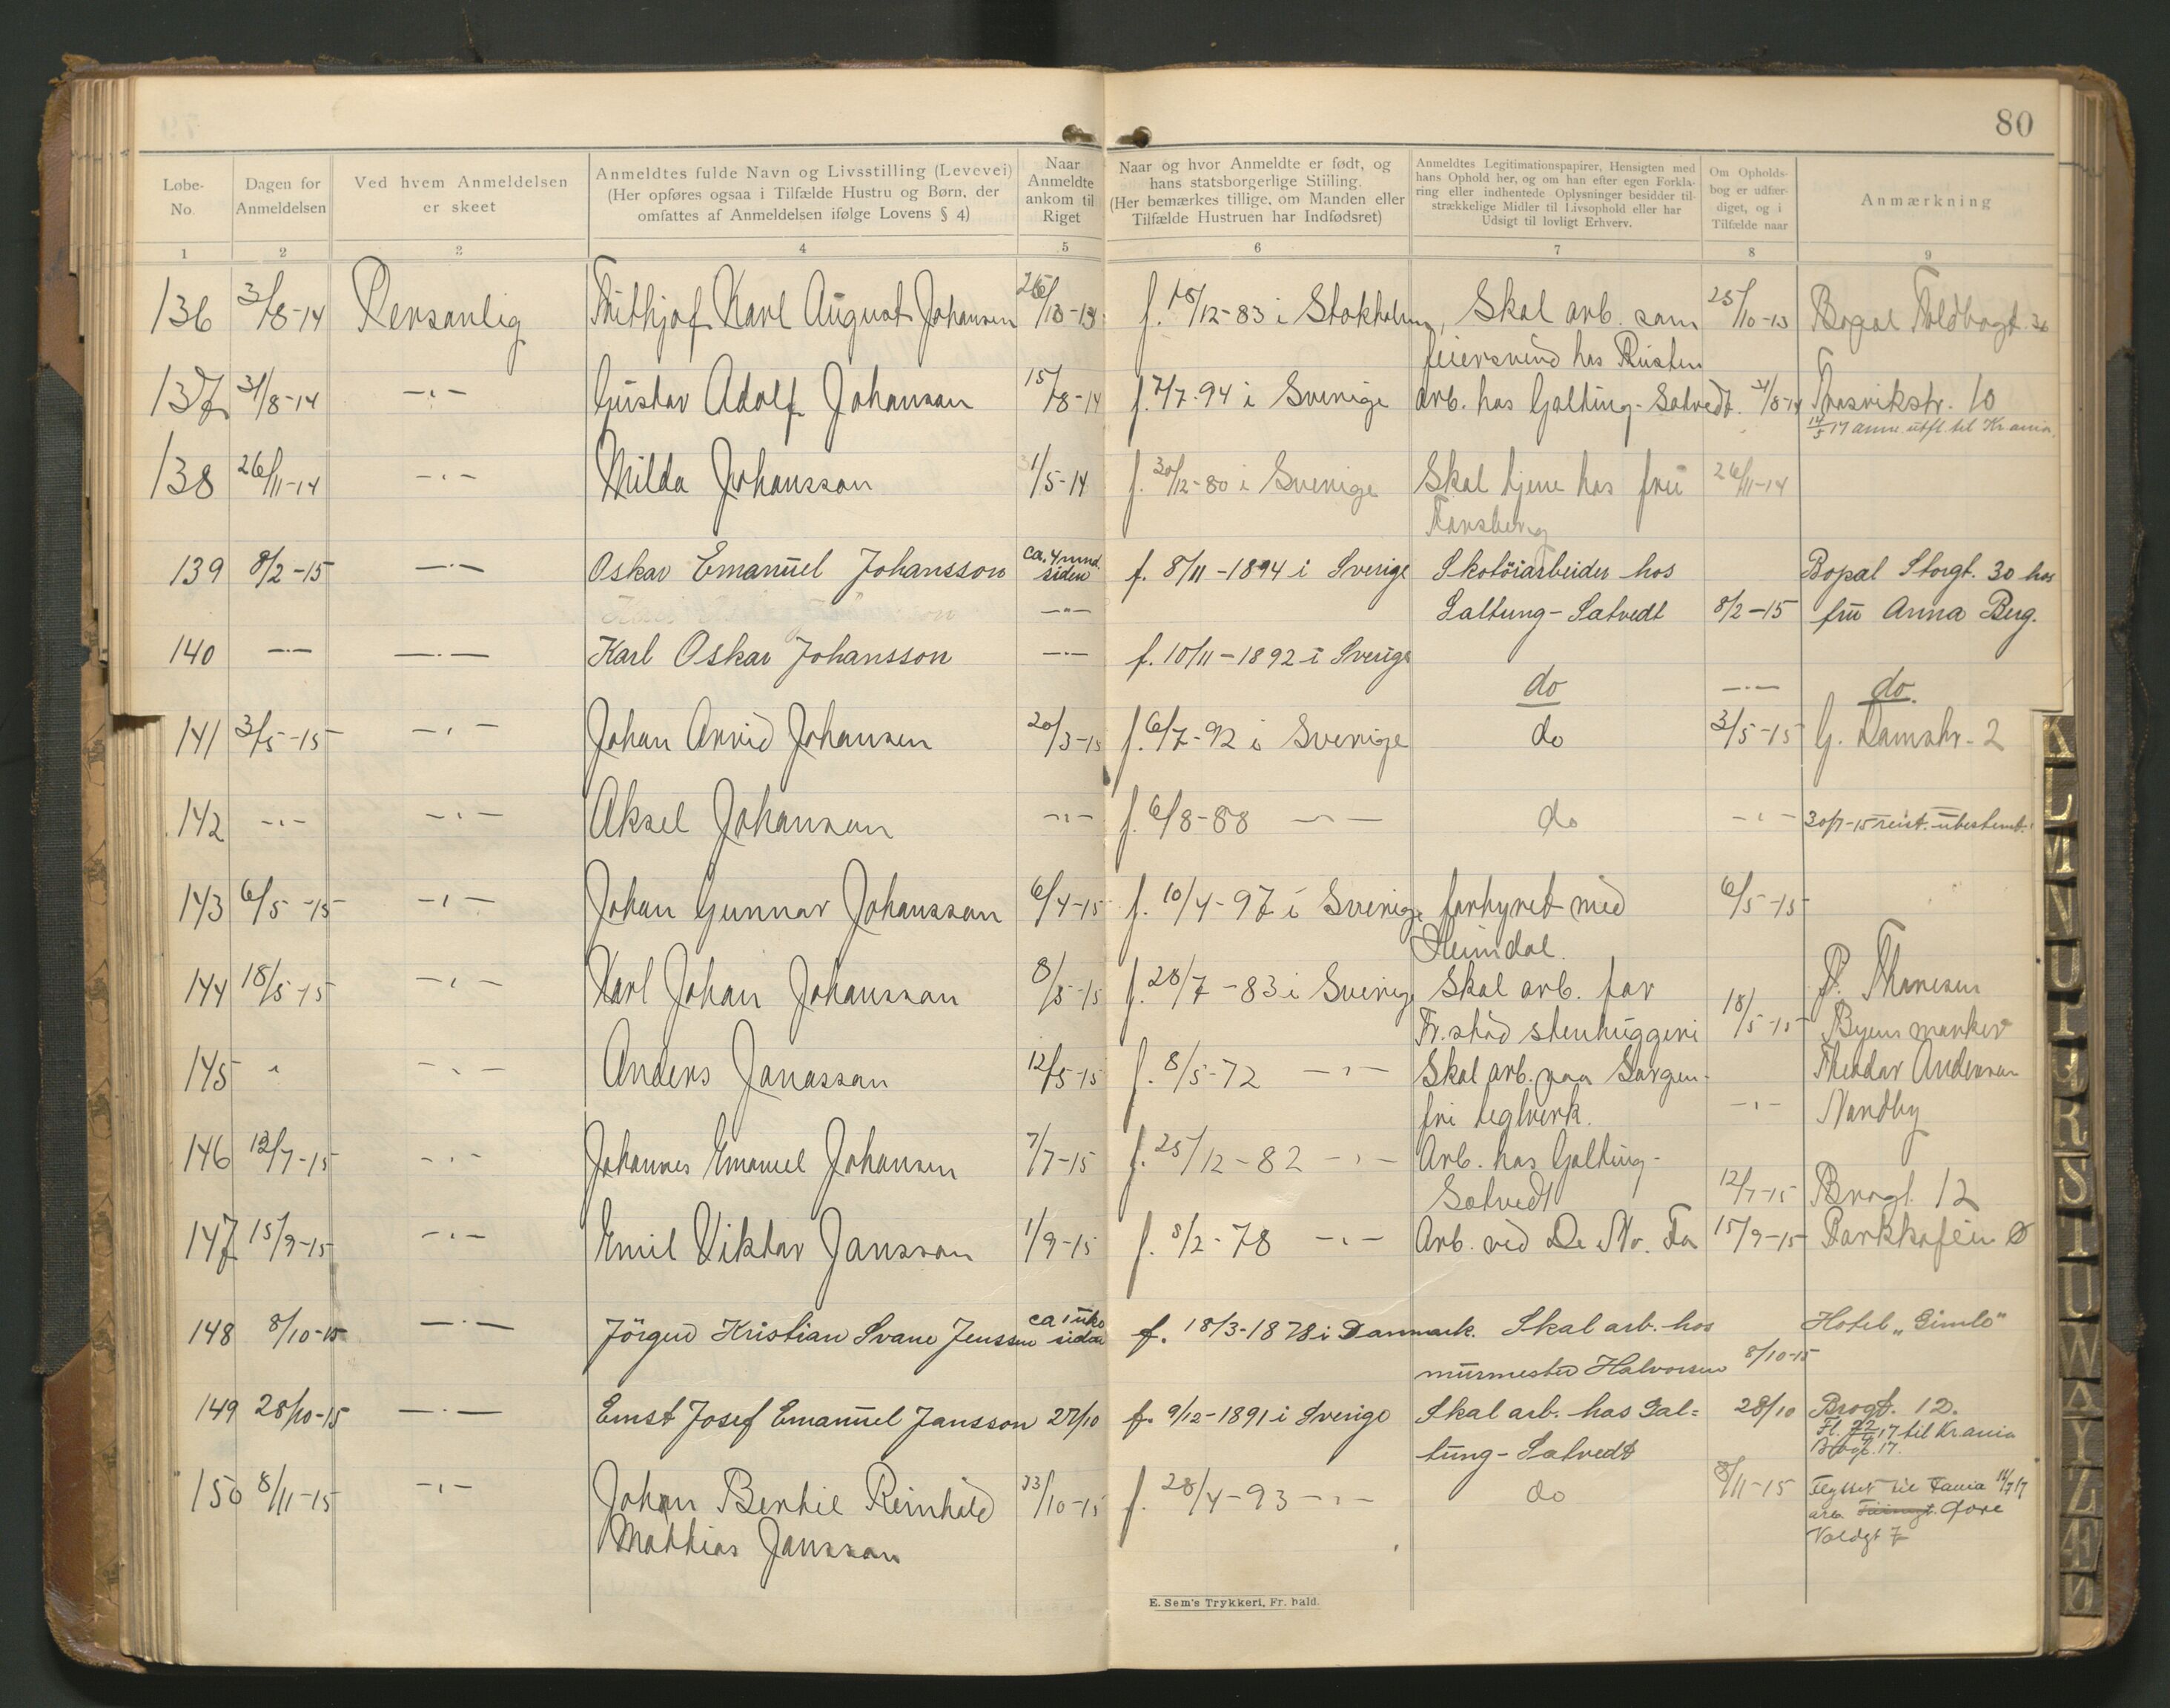 80
Løbe-No.
Dagen for Anmeldelsen
Ved hvem Anmeldelsen er skeet
Anmeldtes fulde Navn og Livsstilling (Levevei)
(Her opføres ogsaa i Tilfælde Hustru og Børn, der
omfattes af Anmeldelsen ifølge Lovens § 4)
Naar Anmeldte ankom til Riget
Naar og hvor Anmeldte er født, og
hans statsborgerlige Stilling.
(Her bemærkes tillige, om Manden eller
Tilfælde Hustruen har Indfødsret)
Anmeldtes Legitimationspapirer, Hensigten med
hans Ophold her, og om han efter egen Forkla-
ring eller indhentede Oplysninger besidder til-
strækkelige Midler til Livsophold eller har
Udsigt til lovligt Erhverv.
Om Opholds-
bog er udfær-
diget, og i
Tilfælde naar
Anmærkning
1 2 3 4 5 6 7 8 9
136 3/8-14 Personlig Frithjof Karl August Johansen f. 18/12-83 i Stokholm, Skal arb. som 25/10-13 Bopal Toldbogt. 30
feiersvend hos
137 31/8-14 -"- Gustav Adolf Johanson 15/8-14 f. 7/7-94 i Sverige arb. hos Galtung-Satvedt. 31/8-14 Trosvikstr. 10
17 anm. utfl. til Kr.ania.
138 26/11-14 -"- Milda Johansson 1/5-14 f. 30/12-80 i Sverige Skal tjene hos fru 26/11-14
Torsberg
139 8/2-15 -"- Oskar Emanuel Johansson ca. 4 mnd. siden f. 8/11-1894 i Sverige Skotöiarbeider hos Bopal Storgt. 30 hos
-"- Galtung-Satvedt 8/2-15 fru Anna Berg.
140 -"- -"- Karl Oskar Johansson -"- f. 10/11-1892 i Sverige
do -"- do
141 3/5-15 -"- Johan Arvid Johansen 20/3-15 f. 6/7-92 i Sverige do 3/5-15 G. Damstr. 2
142 -"- -"- Aksel Johanson -"- f. 6/8-88 -"- do -"- 30/7-15 reist. ubestemt.
143 6/5-15 -"- Johan Gunnar Johansson 6/4-15 f. 10/4-97 i Sverige forhyret med 6/5-15
Heimdal.
144 18/5-15 -"- Karl Johan Johansson 8/5-15 f. 28/7-83 i Sverige Skal arb. for P. Thoresen
Fr.stad stenhuggeri 18/5-15 Byens marker
145 " -"- Anders Jonasson 12/5-15 f. 8/5-72 -"- Skal arb. paa Sorgen- Theodor Anderson
fri teglverk. -"- Nordby
146 12/7-15 -"- Johannes Emanuel Johansen 7/7-15 f. 25/12-82 -"- Arb. hos Galtung-
Satvedt 12/7-15 Brogt. 12
147 15/9-15 -"- Emil Viktor Jansson 1/9-15 f. 8/2-78 -"- Arb. ved De No. Fa 15/9-15 Parkkafeen Ø
148 8/10-15 -"- Jörgen Kristian Svane Jenssen ca 1 uke siden f. 18/3-1878 i Danmark. Skal arb. hos Hotel „Gimle"
murmester Halvorsen 8/10-15
149 28/10-15 -"- Ernst Josef Emanuel Jansson 27/10 f. 9/12-1891 i Sverige Skal arb. hos Gal- 28/10 Brogt. 12.
tung-Satvedt Fl. 17 til Kr.ania
Brogt. 17.
150 8/11-15 -"- Johan Bertil Reinhold 23/10-15 f. 28/4-93 -"- do 8/11-15 Flyttet til
Mathias Jansson Voldgt 7
E. Sem's Trykkeri, Fr. hald.
K
L
M
N
O
P
R
S
T
U
W
A
Y
Z
Æ
Ø